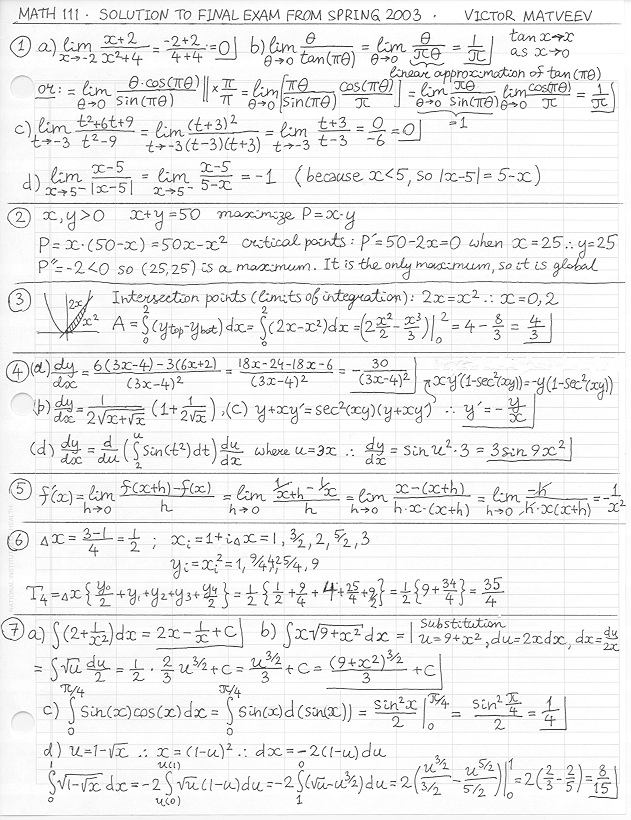 MATH 111 · SOLUTION TO FINAL EXAM FROM SPRING 2003 · VICTOR MATVEEV
① a) lim x→-2 (x+2)/(x²+4) = (-2+2)/(4+4) = 0 b) lim θ→0 θ/tan(πθ) = lim θ→0 θ/(πθ) = 1/π tan x ↔ x as x→0
linear approximation of tan(πθ)
or: = lim θ→0 θ·cos(πθ)/sin(πθ) || × π/π = lim θ→0 [πθ/sin(πθ) cos(πθ)/π] = lim θ→0 πθ/sin(πθ) lim θ→0 cos(πθ)/π = 1/π
=1
c) lim t→-3 (t²+6t+9)/(t²-9) = lim t→-3 (t+3)²/((t-3)(t+3)) = lim t→-3 (t+3)/(t-3) = 0/-6 = 0
d) lim x→5- (x-5)/|x-5| = lim x→5- (x-5)/(5-x) = -1 (because x<5, so |x-5| = 5-x)
② x,y>0 x+y=50 maximize P=x·y
P=x·(50-x)=50x-x² critical points: P'=50-2x=0 when x=25 ∴ y=25
P''=-2<0 so (25,25) is a maximum. It is the only maximum, so it is global
③ 2x x² Intersection points (limits of integration): 2x=x² ∴ x=0,2
A = ∫₀² (y top - y bot) dx = ∫₀² (2x-x²)dx = (2 x²/2 - x³/3)|₀² = 4 - 8/3 = 4/3
④ (a) dy/dx = (6(3x-4)-3(6x+2))/(3x-4)² = (18x-24-18x-6)/(3x-4)² = -30/(3x-4)²
xy'(1-sec²(xy))=-y(1-sec²(xy))
(b) dy/dx = 1/(2√(x+√x)) (1+1/(2√x)), (c) y+xy'=sec²(xy)(y+xy') ∴ y'=-y/x
(d) dy/dx = d/du (∫₂ᵘ sin(t²)dt) du/dx where u=3x ∴ dy/dx = sin u²·3 = 3 sin 9x²
⑤ f'(x) = lim h→0 (f(x+h)-f(x))/h = lim h→0 (1/(x+h) - 1/x)/h = lim h→0 (x-(x+h))/(h·x·(x+h)) = lim h→0 -h/(h·x(x+h)) = -1/x²
⑥ Δx = (3-1)/4 = 1/2 ; xᵢ=1+iΔx = 1, 3/2, 2, 5/2, 3
yᵢ=xᵢ²=1, 9/4, 4, 25/4, 9
T₄=Δx{y₀/2+y₁+y₂+y₃+y₄/2} = 1/2{1/2+9/4+4+25/4+9/2} = 1/2{9+34/4} = 35/4
⑦ a) ∫(2+1/x²)dx = 2x-1/x+C b) ∫x√(9+x²) dx = | Substitution u=9+x², du=2xdx, dx=du/2x
= ∫√u du/2 = 1/2 · 2/3 u^3/2 + C = u^3/2/3 + C = (9+x²)^3/2/3 + C
c) ∫₀^π/4 sin(x)cos(x)dx = ∫₀^π/4 sin(x)d(sin(x)) = sin²x/2 |₀^π/4 = sin² π/4 /2 = 1/4
d) u=1-√x ∴ x=(1-u)² ∴ dx=-2(1-u)du
∫₀¹ √(1-√x) dx = -2 ∫u(0)^u(1) √u(1-u)du = -2 ∫₁⁰ (√u-u^3/2)du = 2(u^3/2/(3/2) - u^5/2/(5/2))|₀¹ = 2(2/3-2/5) = 8/15